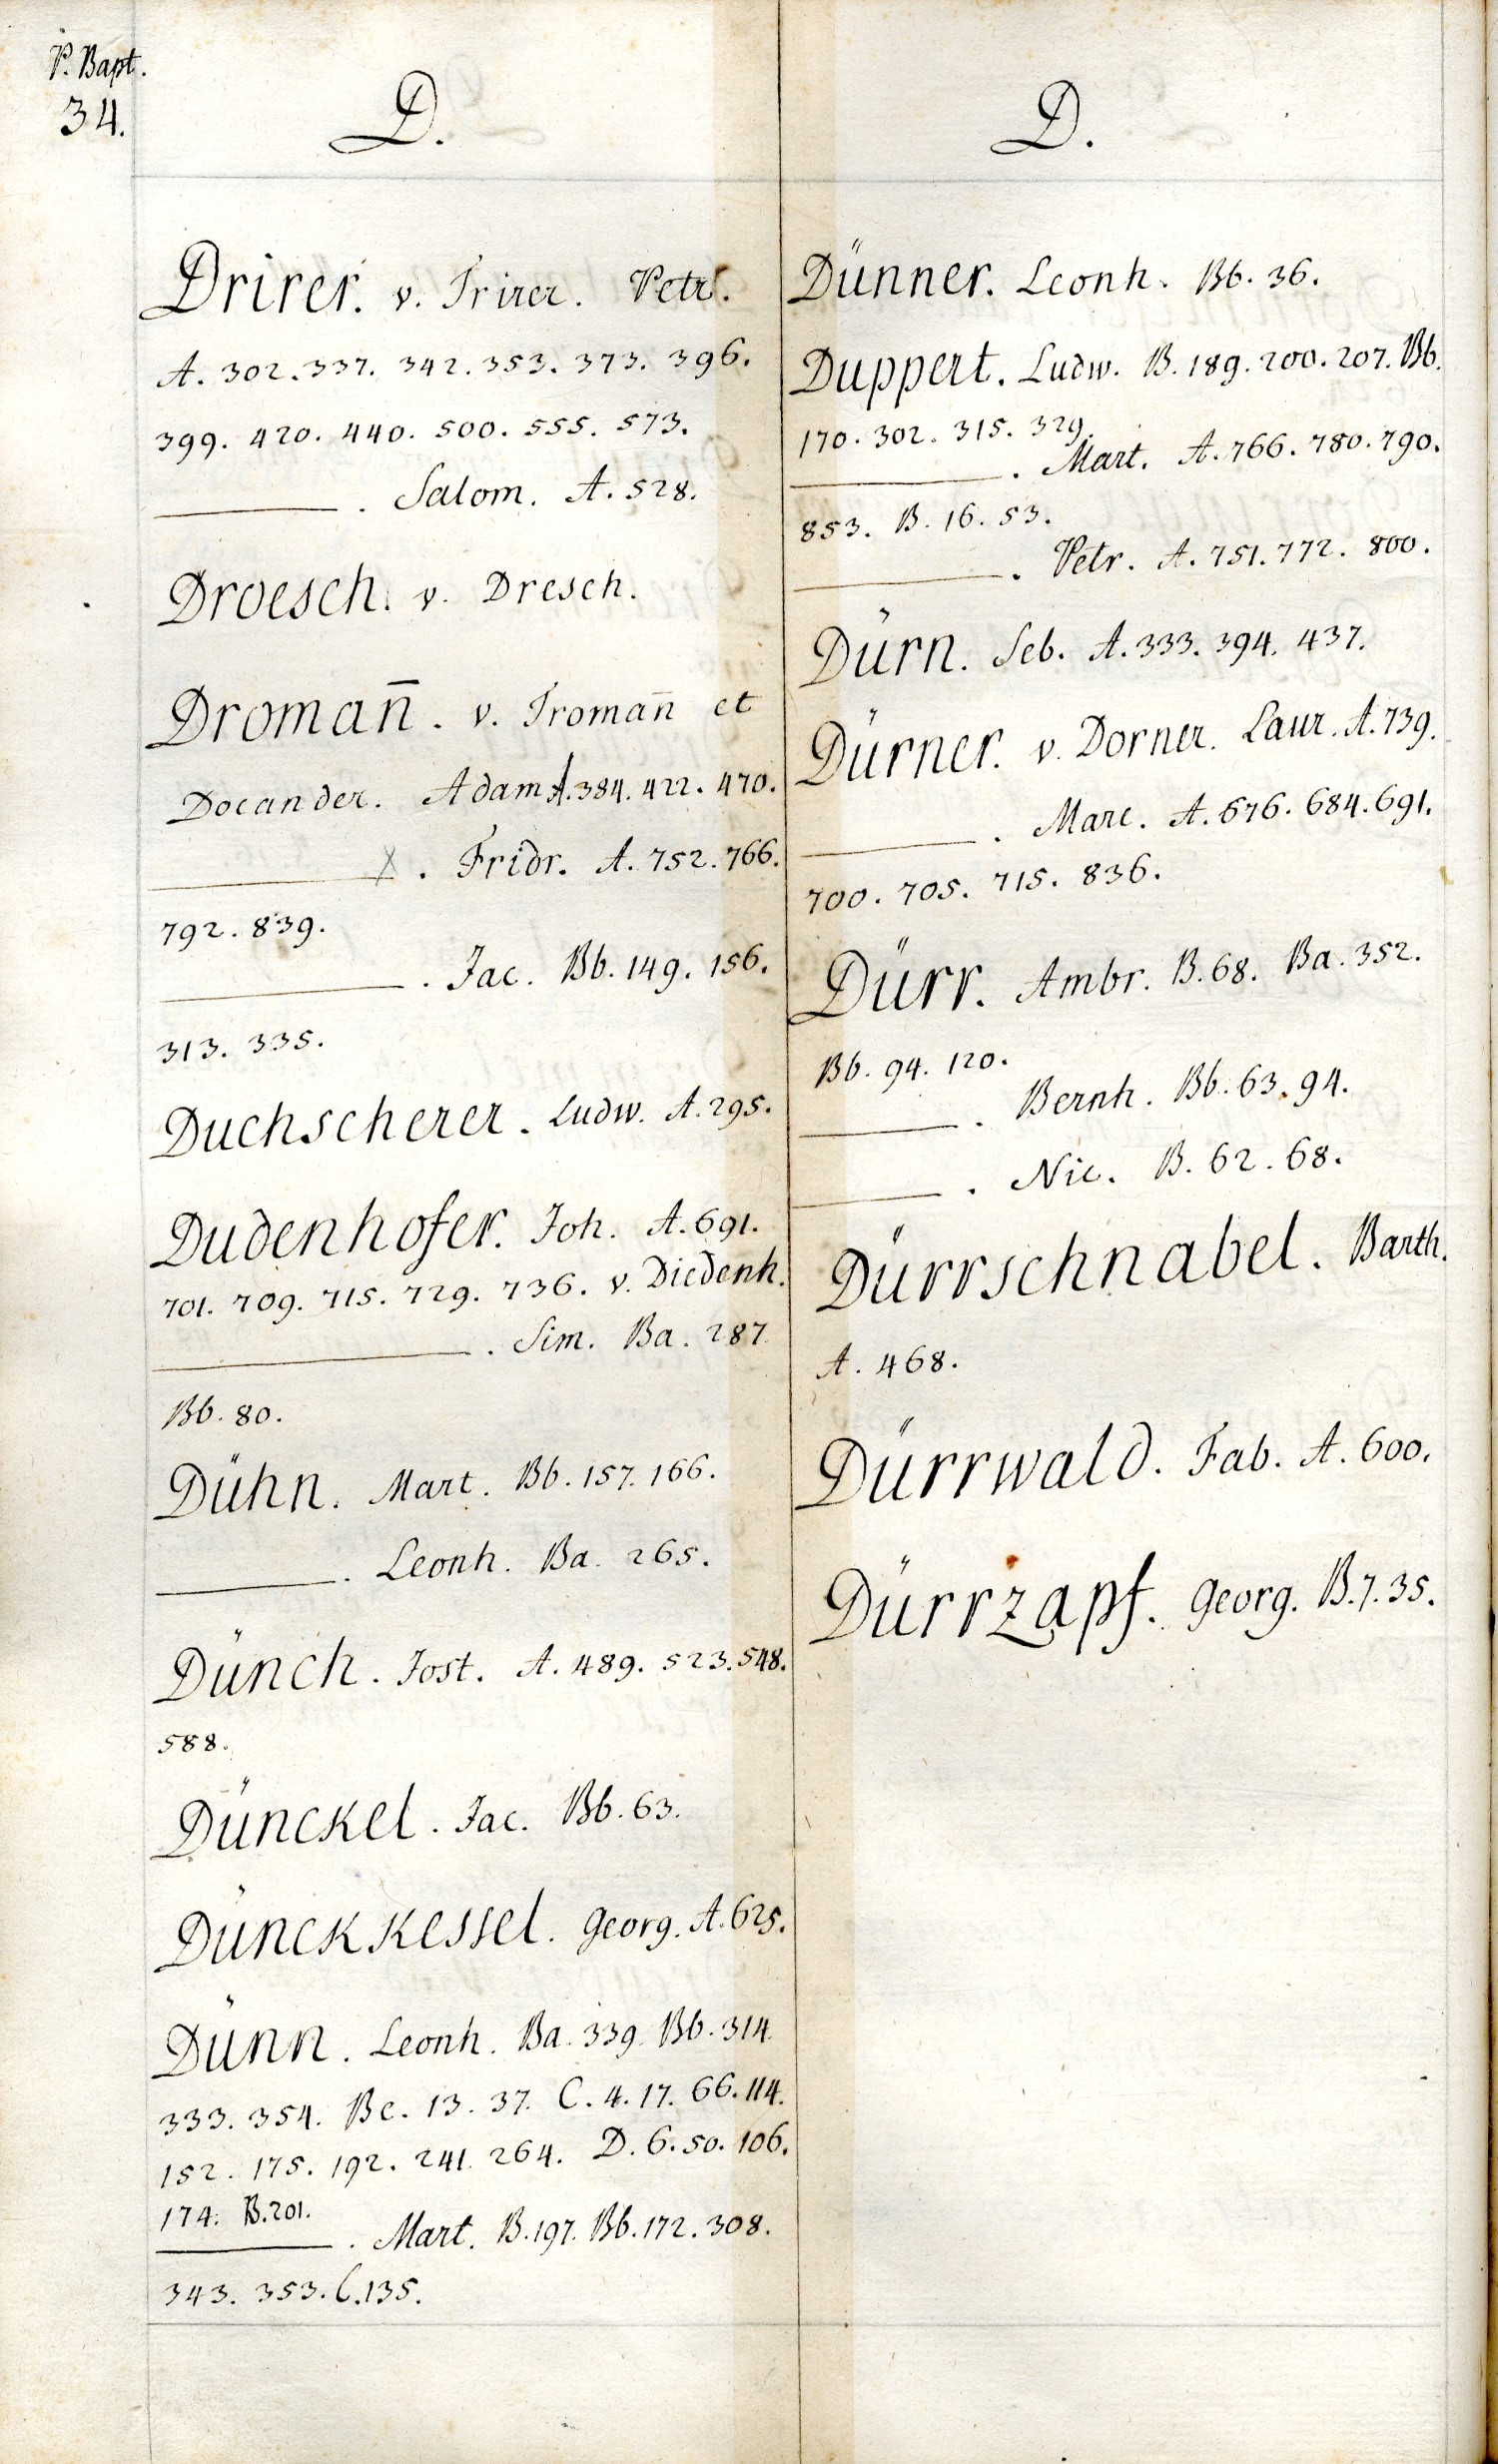 P. Bapt.
34.
D.
Drirer. v. Trirer. Petr.
A. 302. 337. 342. 353. 373. 396.
399. 420. 440. 500. 555. 573.
———. Salom. A. 528.
Droesch. v. Dresch.
Romañ. v. Tromañ et
Docander. Adam A. 384. 422. 470.
———. Fridr. A. 752. 766.
792. 839.
———. Jac. Bb. 149. 156.
313. 335.
Duchscherer. Ludw. A. 295.
Dudenhofer. Joh. A. 691.
701. 709. 715. 729. 736. v. Diedenh.
———. Sim. Ba. 287
Bb. 80.
Dühn. Mart. Bb. 157. 166.
———. Leonh. Ba. 265.
Dünch. Jost. A. 489. 523. 548.
588.
Dünckel. Jac. Bb. 63.
Dünckkessel. Georg. A. 625.
Dünn. Leonh. Ba. 339. Bb. 314.
333. 354. Bc. 13. 37. C. 4. 17. 66. 114.
152. 175. 192. 241. 264. D. 6. 50. 106.
174. B. 201.
———. Mart. B. 197. Bb. 172. 308.
343. 353. C. 135.
D.
Dünner. Leonh. Bb. 36.
Duppert. Ludw. B. 189. 200. 207. Bb.
170. 302. 315. 329.
———. Mart. A. 766. 780. 790.
853. B. 16. 53.
———. Petr. A. 751. 772. 800.
Dürn. Seb. A. 333. 394. 437.
Dürner. v. Dorner. Laur. A. 739.
———. Marc. A. 676. 684. 691.
700. 705. 715. 836.
Dürr. Ambr. B. 68. Ba. 352.
Bb. 94. 120.
———. Bernh. Bb. 63. 94.
———. Nic. B. 62. 68.
Dürrschnabel. Barth.
A. 468.
Dürrwald. Fab. A. 600.
Dürrzapf. Georg. B. 7. 35.